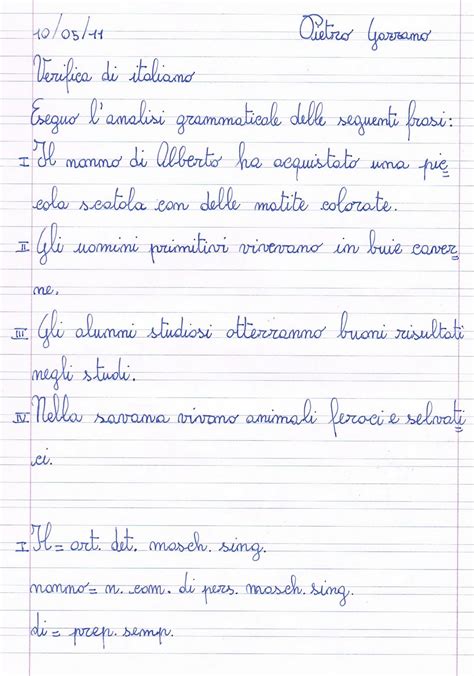 10/05/11 Pietro Garrano
Verifica di italiano
Eseguo l'analisi grammaticale delle seguenti frasi:
I Il nonno di Alberto ha acquistato una pic
cola scatola con delle matite colorate.
II Gli uomini primitivi vivevano in buie caver
ne.
III Gli alunni studiosi otterranno buoni risultati
negli studi.
IV Nella savana vivono animali feroci e selvati
ci.
I Il= art. det. masch. sing.
nonno= n. com. di pers. masch. sing.
di= prep. semp.